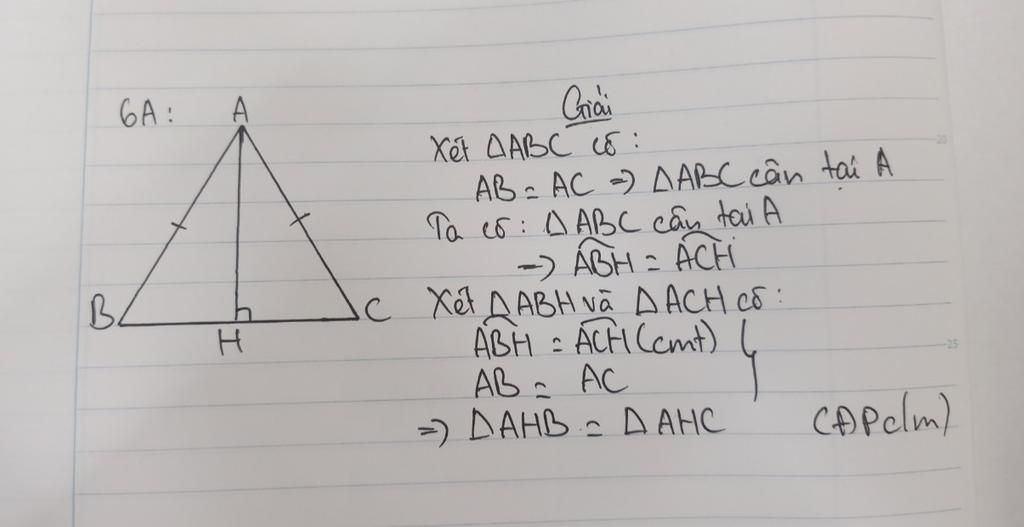 6A:
A
B
H
C
Giải
Xét ΔABC có:
AB = AC => ΔABC cân tại A
Ta có: ΔABC cân tại A
=> ABH = ACH
Xét ΔABH và ΔACH có:
ABH = ACH (cmt)
AB = AC
=> ΔAHB = ΔAHC (Đpcm)
20
25